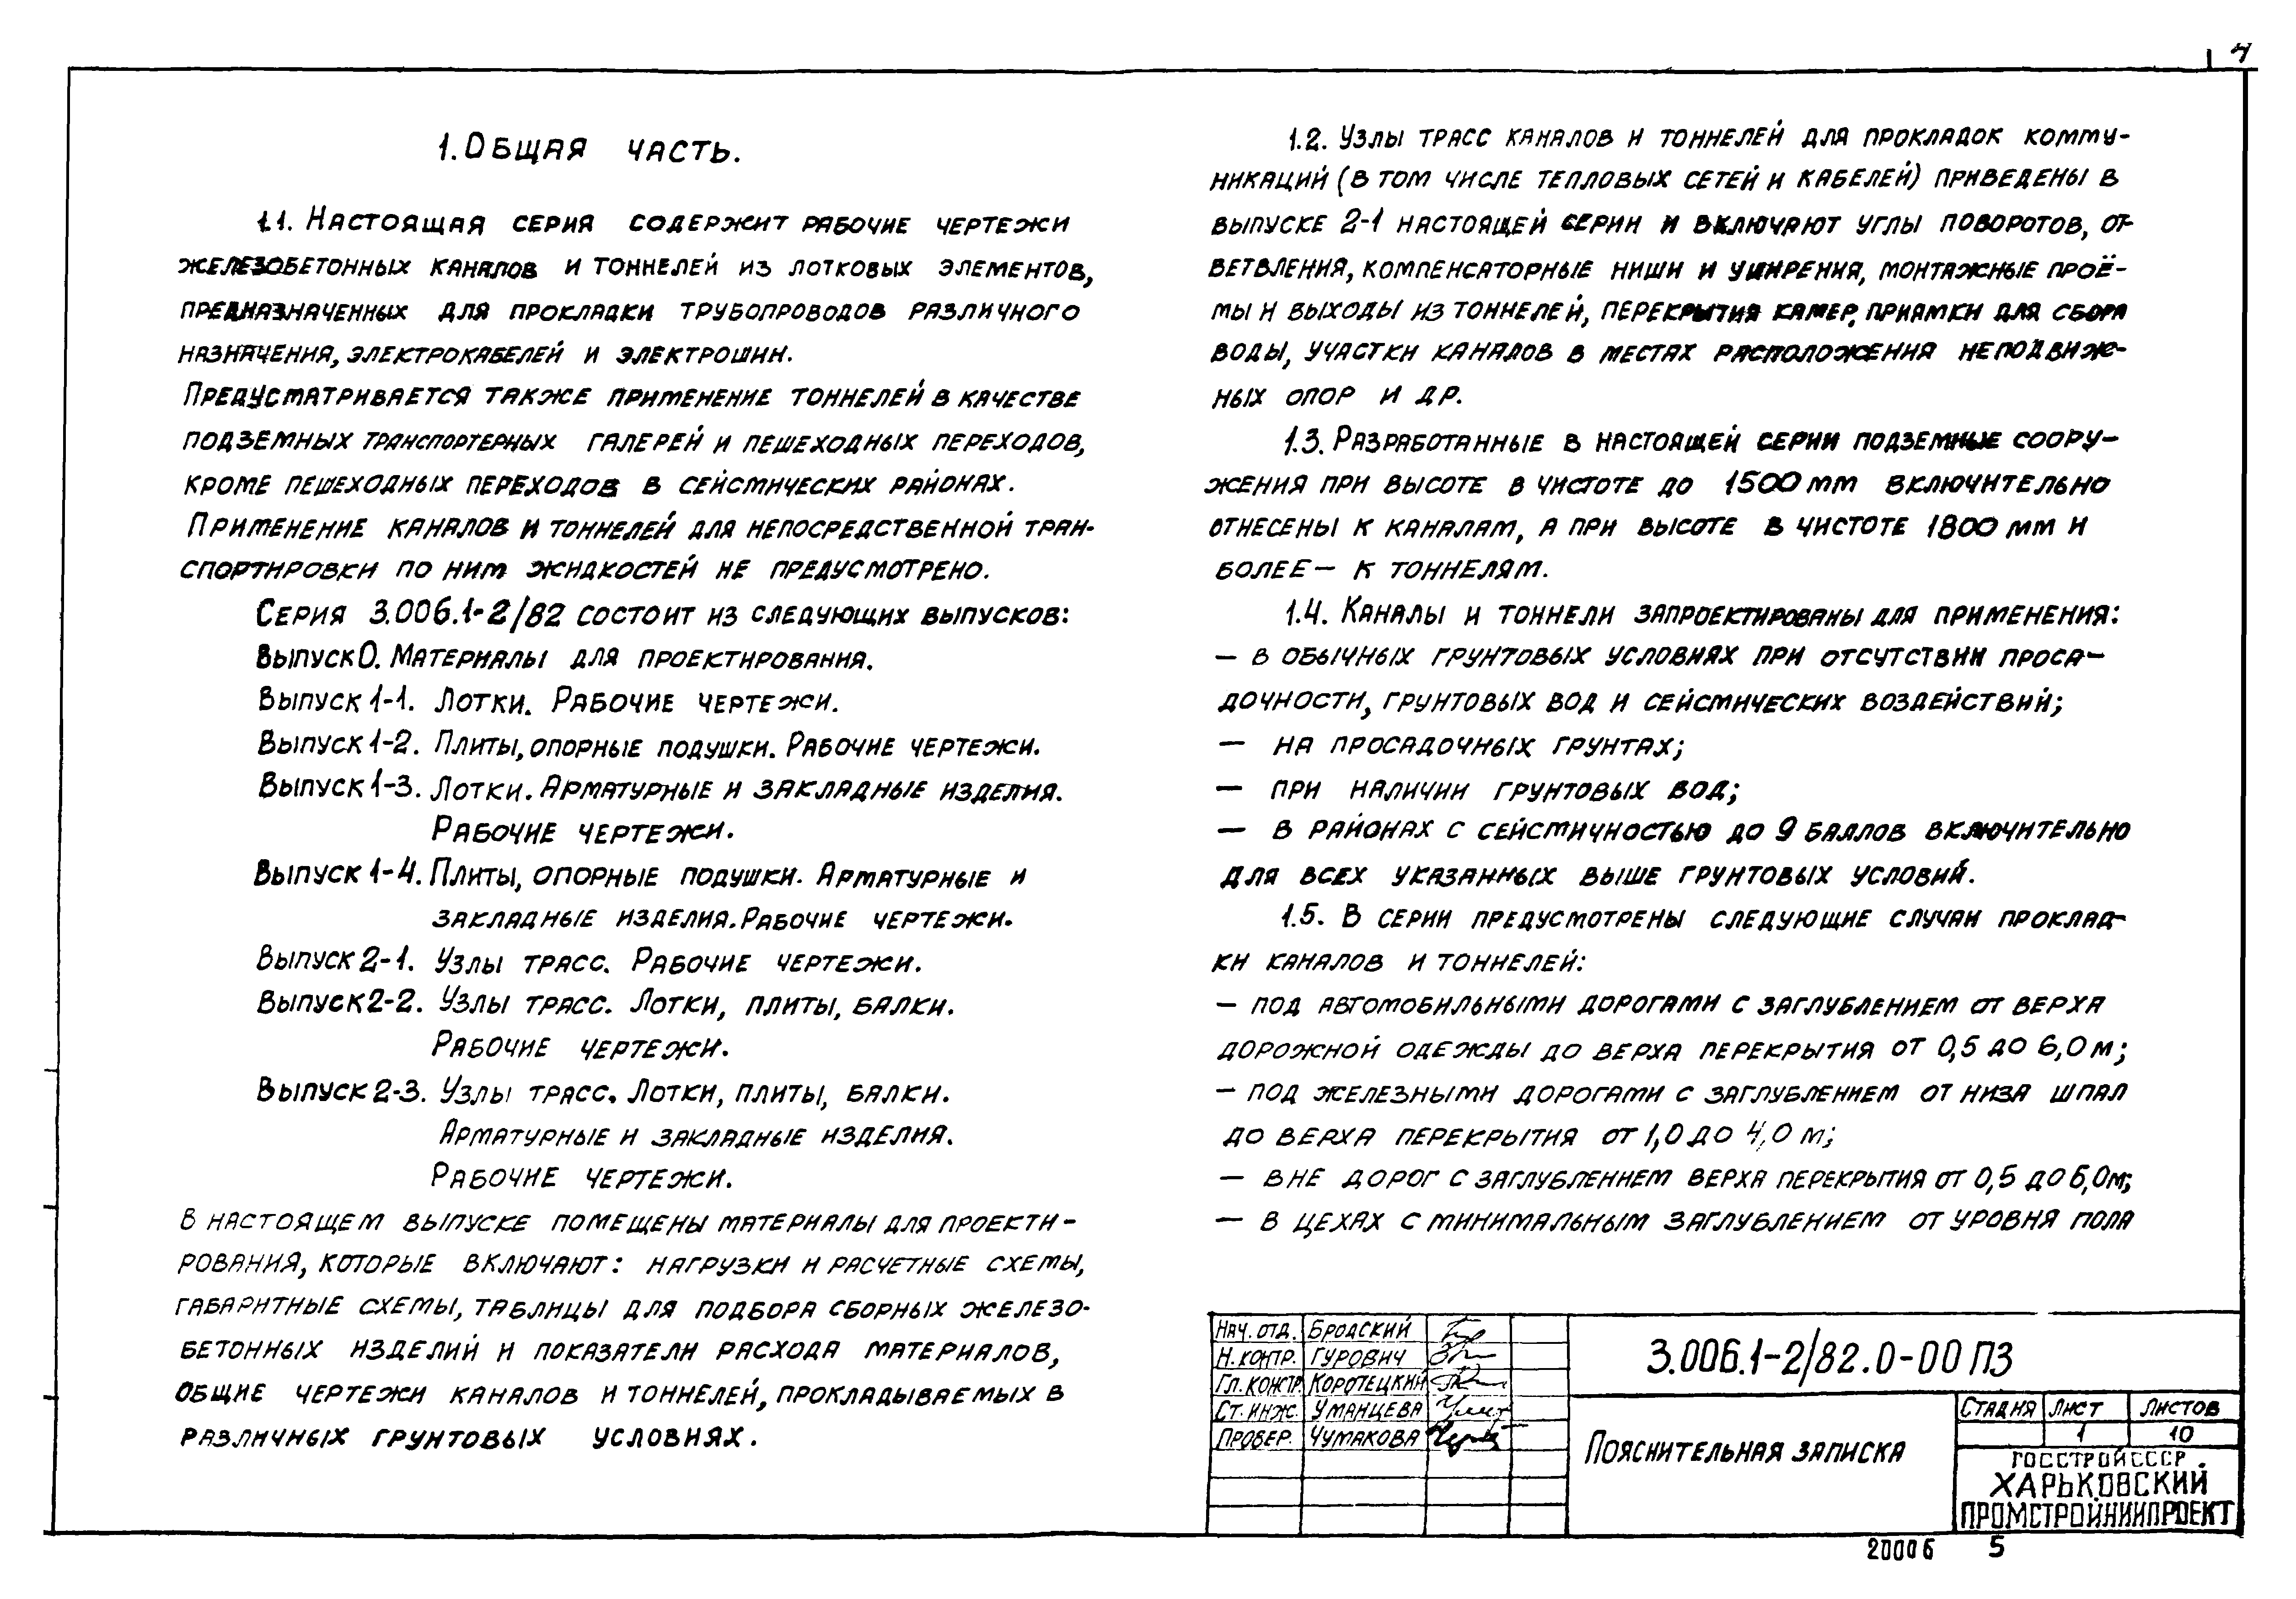 4
1. Общая часть.
1.1. Настоящая серия содержит рабочие чертежи
железобетонных каналов и тоннелей из лотковых элементов,
предназначенных для прокладки трубопроводов различного
назначения, электрокабелей и электрошин.
Предусматривается также применение тоннелей в качестве
подземных транспортерных галерей и пешеходных переходов,
кроме пешеходных переходов в сейсмических районах.
Применение каналов и тоннелей для непосредственной тран-
спортировки по ним жидкостей не предусмотрено.
Серия 3.006.1-2/82 состоит из следующих выпусков:
Выпуск 0. Материалы для проектирования.
Выпуск 1-1. Лотки. Рабочие чертежи.
Выпуск 1-2. Плиты, опорные подушки. Рабочие чертежи.
Выпуск 1-3. Лотки. Арматурные и закладные изделия.
Рабочие чертежи.
Выпуск 1-4. Плиты, опорные подушки. Арматурные и
закладные изделия. Рабочие чертежи.
Выпуск 2-1. Узлы трасс. Рабочие чертежи.
Выпуск 2-2. Узлы трасс. Лотки, плиты, балки.
Рабочие чертежи.
Выпуск 2-3. Узлы трасс. Лотки, плиты, балки.
Арматурные и закладные изделия.
Рабочие чертежи.
В настоящем выпуске помещены материалы для проекти-
рования, которые включают: нагрузки и расчетные схемы,
габаритные схемы, таблицы для подбора сборных железо-
бетонных изделий и показатели расхода материалов,
общие чертежи каналов и тоннелей, прокладываемых в
различных грунтовых условиях.
1.2. Узлы трасс каналов и тоннелей для прокладок комму-
никаций (в том числе тепловых сетей и кабелей) приведены в
выпуске 2-1 настоящей серии и включают углы поворотов, от-
ветвления, компенсаторные ниши и уширения, монтажные проё-
мы и выходы из тоннелей, перекрытия камер, приямки для сбора
воды, участки каналов в местах расположения неподвиж-
ных опор и др.
1.3. Разработанные в настоящей серии подземные соору-
жения при высоте в чистоте до 1500 мм включительно
отнесены к каналам, а при высоте в чистоте 1800 мм и
более — к тоннелям.
1.4. Каналы и тоннели запроектированы для применения:
— в обычных грунтовых условиях при отсутствии проса-
дочности, грунтовых вод и сейсмических воздействий;
— на просадочных грунтах;
— при наличии грунтовых вод;
— в районах с сейсмичностью до 9 баллов включительно
для всех указанных выше грунтовых условий.
1.5. В серии предусмотрены следующие случаи проклад-
ки каналов и тоннелей:
— под автомобильными дорогами с заглублением от верха
дорожной одежды до верха перекрытия от 0,5 до 6,0 м;
— под железными дорогами с заглублением от низа шпал
до верха перекрытия от 1,0 до 4,0 м;
— вне дорог с заглублением верха перекрытия от 0,5 до 6,0 м;
— в цехах с минимальным заглублением от уровня пола
Нач. отд. Бродский
Н. контр. Гурович
Гл. констр. Коротецкий
Ст. инж. Уманцева
Провер. Чумакова
3.006.1-2/82.0-00 ПЗ
Пояснительная записка
Стадия Лист Листов
1 10
Госстрой СССР
Харьковский
Промстройниипроект
20006 5